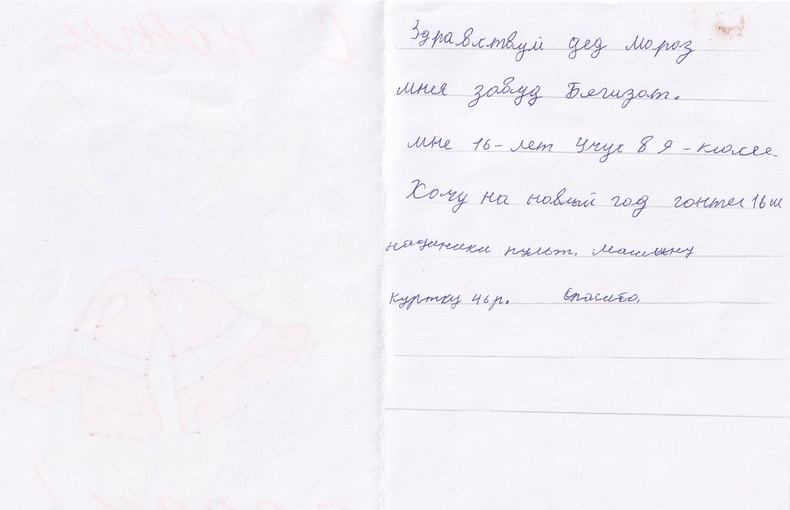 Здравствуй дед мороз
мня завуд Бягизат.
мне 16-лет Учус в 9-классе
Хочу на новый год гонтел 16ш
наушники пульт. машыну
куртку 46р. Спасибо.